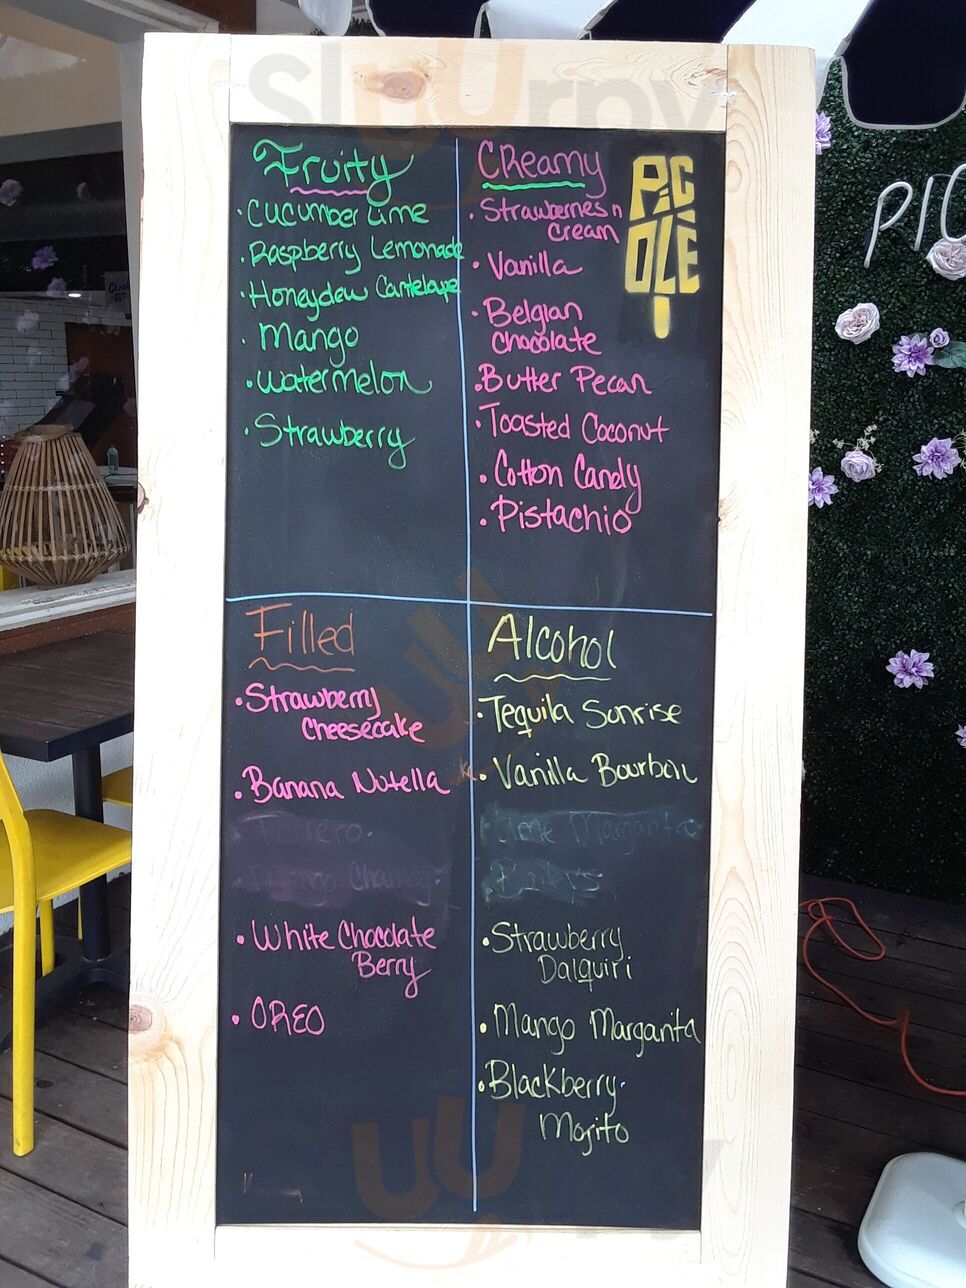 Sluurpy
Fruity
• Cucumber Lime
• Raspberry Lemonade
• Honeydew Cantelope
• Mango
• Watermelon
• Strawberry
Creamy
• Strawberries n
Cream
• Vanilla
• Belgian
Chocolate
• Butter Pecan
• Toasted Coconut
• Cotton Candy
• Pistachio
PiC
OLÉ
PIC
Filled
• Strawberry
Cheesecake
• Banana Nutella
Ferrero
Mango
• White Chocolate
Berry
• OREO
Alcohol
• Tequila Sonrise
• Vanilla Bourbon
Lime Margarita
Baileys
• Strawberry
Daiquiri
• Mango Margarita
• Blackberry
Mojito